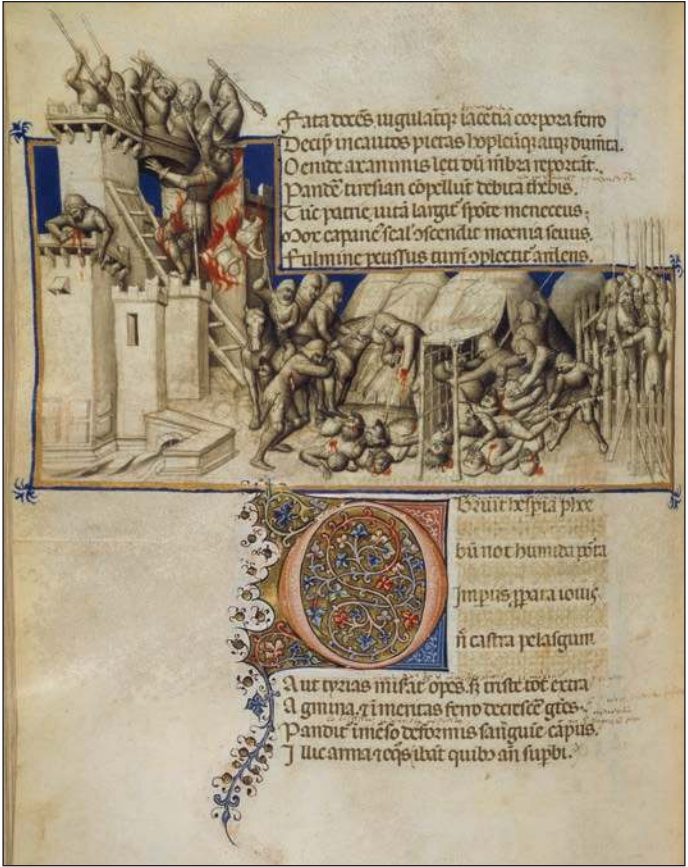 Fata docēs iugulatqꝫ iacētia corpora ferro
Decip incautos pietas hopleuqꝫ atqꝫ dimāta.
Oenide axanimis leti dū mēbra reportāt.
Pande tiresian cōpellūt debita thebis.
Tūc patrie uitā largit spōte meneceus.
Mox capane scal ꝯscendit moenia seuus.
Fulmine pcussus turrī ꝯplectit anlens.
O Bruit hespia phe
bū nox humida pōta
Impiis ꝓpata iouis
n̄ castra pelasgum
Aut tyrias misat opes. s̄ triste tot extra
Agmina. ⁊ īmeritas ferro decrescē gētes.
Pandit īmēso deformis sanguie cāpus.
Illic arma ⁊ eqs ibāt quibꝫ an̄ supbi.